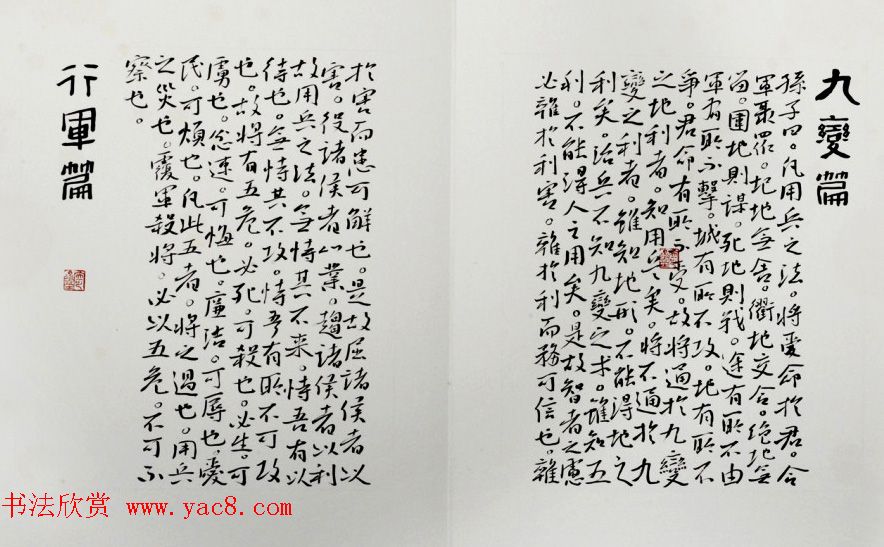 九變篇
孫子曰。凡用兵之法。將受命於君。合
軍聚眾。圮地無舍。衢地交合。絕地無
留。圍地則謀。死地則戰。途有所不由
軍有所不擊。城有所不攻。地有所不
爭。君命有所不受。故將通於九變
之地利者。知用兵矣。將不通於九
變之利者。雖知地形。不能得地之
利矣。治兵不知九變之术。雖知五
利。不能得人之用矣。是故智者之慮
必雜於利害。雜於利而務可信也。雜
於害而患可解也。是故屈諸侯者以
害。役諸侯者以業。趨諸侯者以利
故用兵之法。無恃其不来。恃吾有以
待也。無恃其不攻。恃吾有所不可攻
也。故將有五危。必死。可殺也。必生。可
虜也。忿速。可悔也。廉洁。可辱也。愛
民。可煩也。凡此五者。將之過也。用兵
之災也。覆軍殺將。必以五危。不可不
察也。
行軍篇
书法欣赏 www.yac8.com